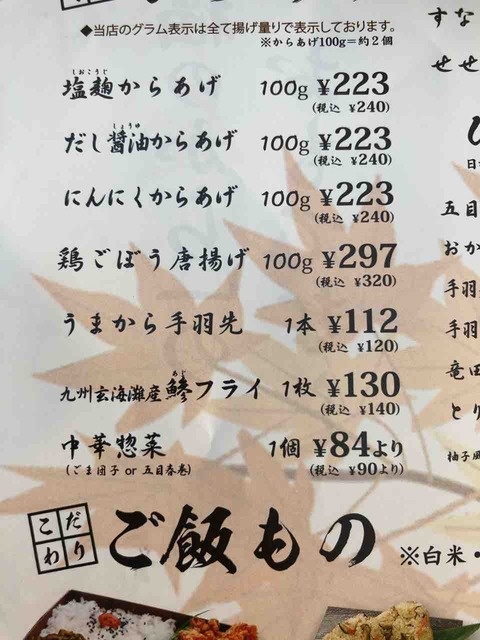 ◆当店のグラム表示は全て揚げ量りで表示しております。
※からあげ100g＝約２個
しおこうじ
塩麹からあげ 100g ¥223
(税込 ¥240)
しょうゆ
だし醤油からあげ 100g ¥223
(税込 ¥240)
にんにくからあげ 100g ¥223
(税込 ¥240)
鶏ごぼう唐揚げ 100g ¥297
(税込 ¥320)
うまから手羽先 1本 ¥112
(税込 ¥120)
あじ
九州玄海灘産鯵フライ 1枚 ¥130
(税込 ¥140)
中華惣菜 1個 ¥84より
(ごま団子 or 五目春巻) (税込 ¥90より)
こだわり
ご飯もの ※白米・
すな
せせ
五目
おか
手羽
手羽
竜田
とり
柚子風